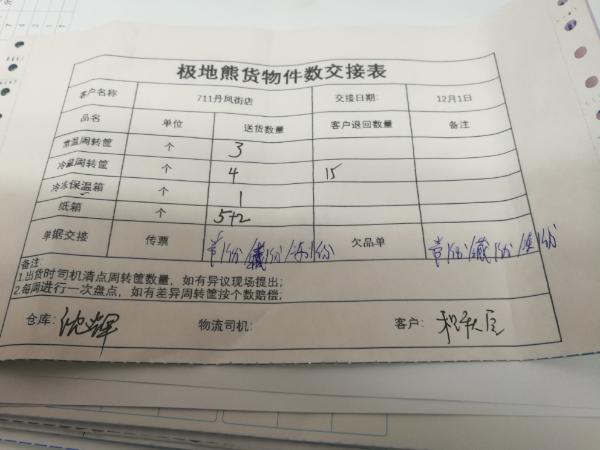 极地熊货物件数交接表
客户名称 711丹凤街店 交接日期: 12月1日
品名 单位 送货数量 客户退回数量 备注
常温周转筐 个 3
冷藏周转筐 个 4 15
冷冻保温箱 个 1
纸箱 个 5+2
单据交接 传票 常1份 藏1份 冻1份 欠品单 常1份 藏1份 冻1份
备注:
1.出货时司机清点周转筐数量，如有异议现场提出;
2.每周进行一次盘点，如有差异周转筐按个数赔偿;
仓库: 沈辉 物流司机: 客户: